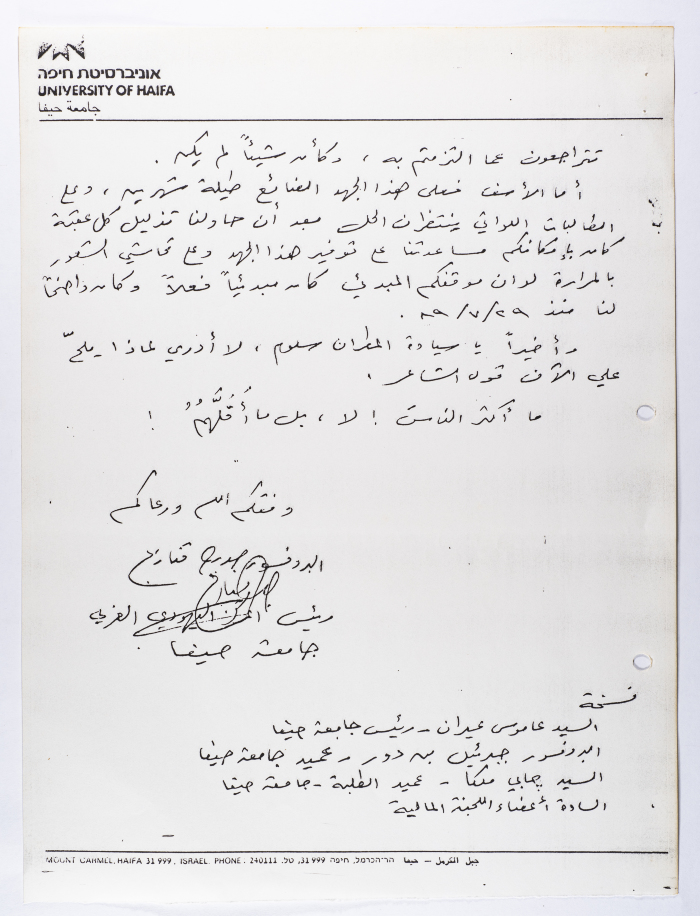 אוניברסיטת חיפה
UNIVERSITY OF HAIFA
جامعة حيفا
تتراجعون عما التزمتم به ، وكأن شيئاً لم يكن .
أما الأسف فعلى هذا الجهد الضائع طيلة شهرين ، وعلى
الطالبات اللواتي ينتظرن الحل بعد أن حاولنا تذليل كل عقبة
كان بإمكانكم مساعدتنا على توفير هذا الجهد وعلى تحاشي الشعور
بالمرارة لو ان موقفكم المبدئي كان مبدئياً فعلاً وكان واضحاً
لنا منذ ٨٩/٧/٢٩ .
وأخيراً يا سيادة المطران سلوم ، لا أدري لماذا يلحّ
علي الآن قول الشاعر .
ما أكثر الناسَ ! لا ، بل ما أقلَّهُمُ !
وفقكم الله ورعاكم
البروفسور جورج قنازع
رئيس المركز اليهودي العربي
جامعة حيفا
نسخة
السيد عاموس عيران - رئيس جامعة حيفا
البروفسور جبرئيل بن دور - عميد جامعة حيفا
السيد - عميد الطلبة - جامعة حيفا
السادة أعضاء اللجنة المالية
MOUNT CARMEL, HAIFA 31 999, ISRAEL. PHONE: 240111 הר-הכרמל, חיפה 31 999, טל. جبل الكرمل — حيفا